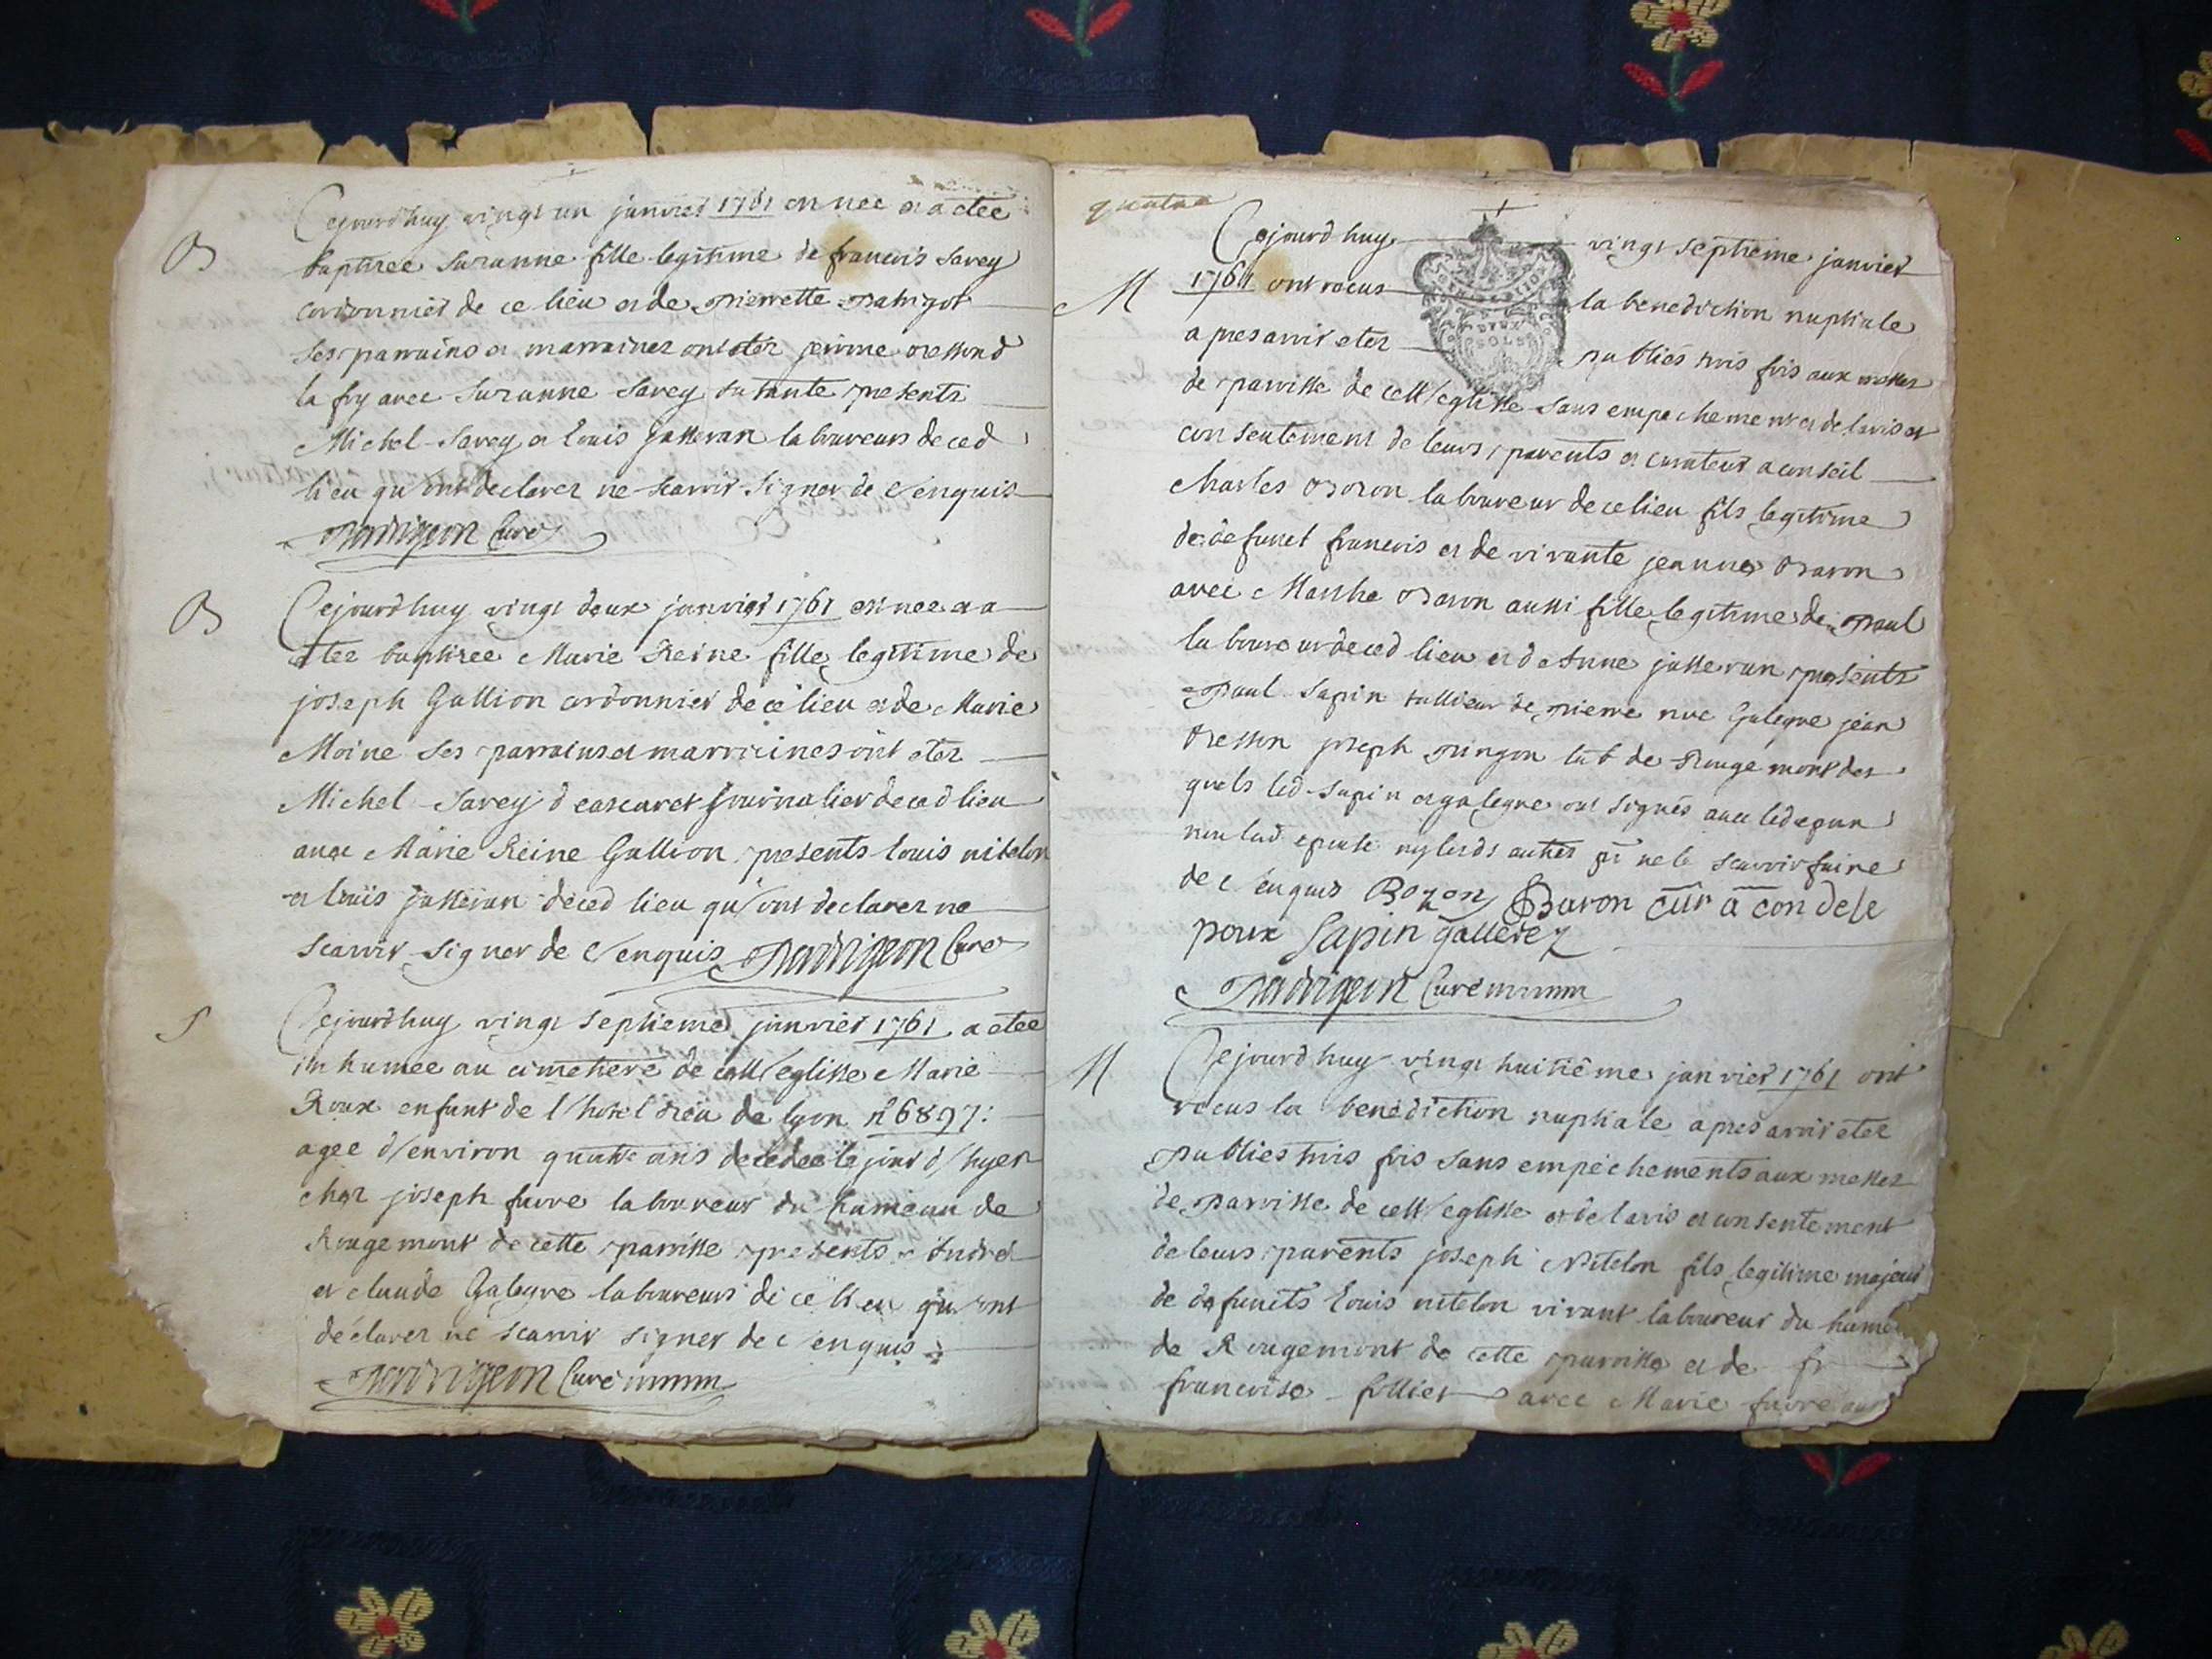 B
Cejourdhuy vingt un janvier 1761 est née et a etee
baptisee Suzanne fille legitime de francois Savey
cordonnier de ce lieu et de pierrette
ses parrains et marraines ont etez jerome
la foy avec Suzanne Savey sa tante presents
Michel Savey et louis jasseran laboureurs deced
lieu qu'ont declarez ne scavoir signer de c/enquis
Curé
B
Cejourdhuy vingt deux janvier 1761 est nee et a
etee baptisee Marie Reine fille legitime de
joseph Gallion cordonnier de ce lieu et de Marie
Moine ses parrains et marraines ont etez
Michel Savey journalier deced lieu
avec Marie Reine Gallion presents louis nitelon
et louis jasseran deced lieu qu/ont declarez ne
scavoir signer de c/enquis Curé
S
Cejourdhuy vingt septieme janvier 1761 a etee
inhumee au cimetiere de cett/eglisse Marie
Roux enfant de l/hotel dieu de lyon n° 6897:
agee d/environ quatre ans decedee le jour d/hyer
chez joseph favre laboureur du hameau de
Rougemont de cette parroisse presents André
et claude Galegre laboureurs de ce lieu qu'ont
declarez ne scavoir signer de c/enquis
Curé
quatre
M
Cejourd'huy vingt septieme janvier
1761 ont recus la benediction nuptiale
apres avoir etez publiés trois fois aux messes
de parroisse de cett/eglisse sans empechements et de lavis et
consentement de leurs parents et curateur a conseil
Charles Bozon laboureur de ce lieu fils legitime
de defunct francois et de vivante jeanne Baron
avec Marthe Baron aussi fille legitime de Paul
laboureur deced lieu et d Anne jasseran presents
Paul Sapin tallieur de pierre Galegre jean
joseph pingon lab de Rougemont des
quels led Sapin et galegre ont signés avec led epoux
non lad epouse ny lesds autres pr ne le scavoir faire
de c/enquis Bozon Baron cur a con de le
poux Sapin gallerey
Curé
M
Cejourdhuy vingt huitiême janvier 1761 ont
recus la benediction nuptiale apres avoir etez
publiés trois fois sans empechements aux messes
de parroisse de cett/eglisse et de lavis et consentement
de leurs parents joseph Nitelon fils legitime majeur
de defuncts louis nitelon vivant laboureur du
de Rougemont de cette parroisse et de fr
francoise follier avec Marie favre